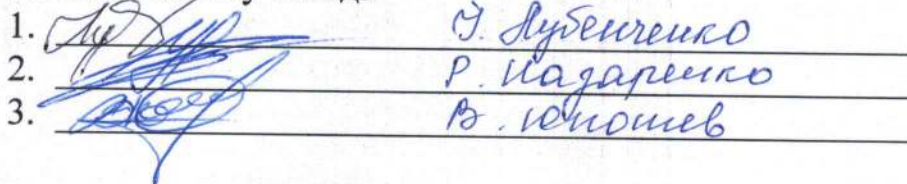 1. І. Лубенченко
2. Р. Назаренко
3. В. Юношев